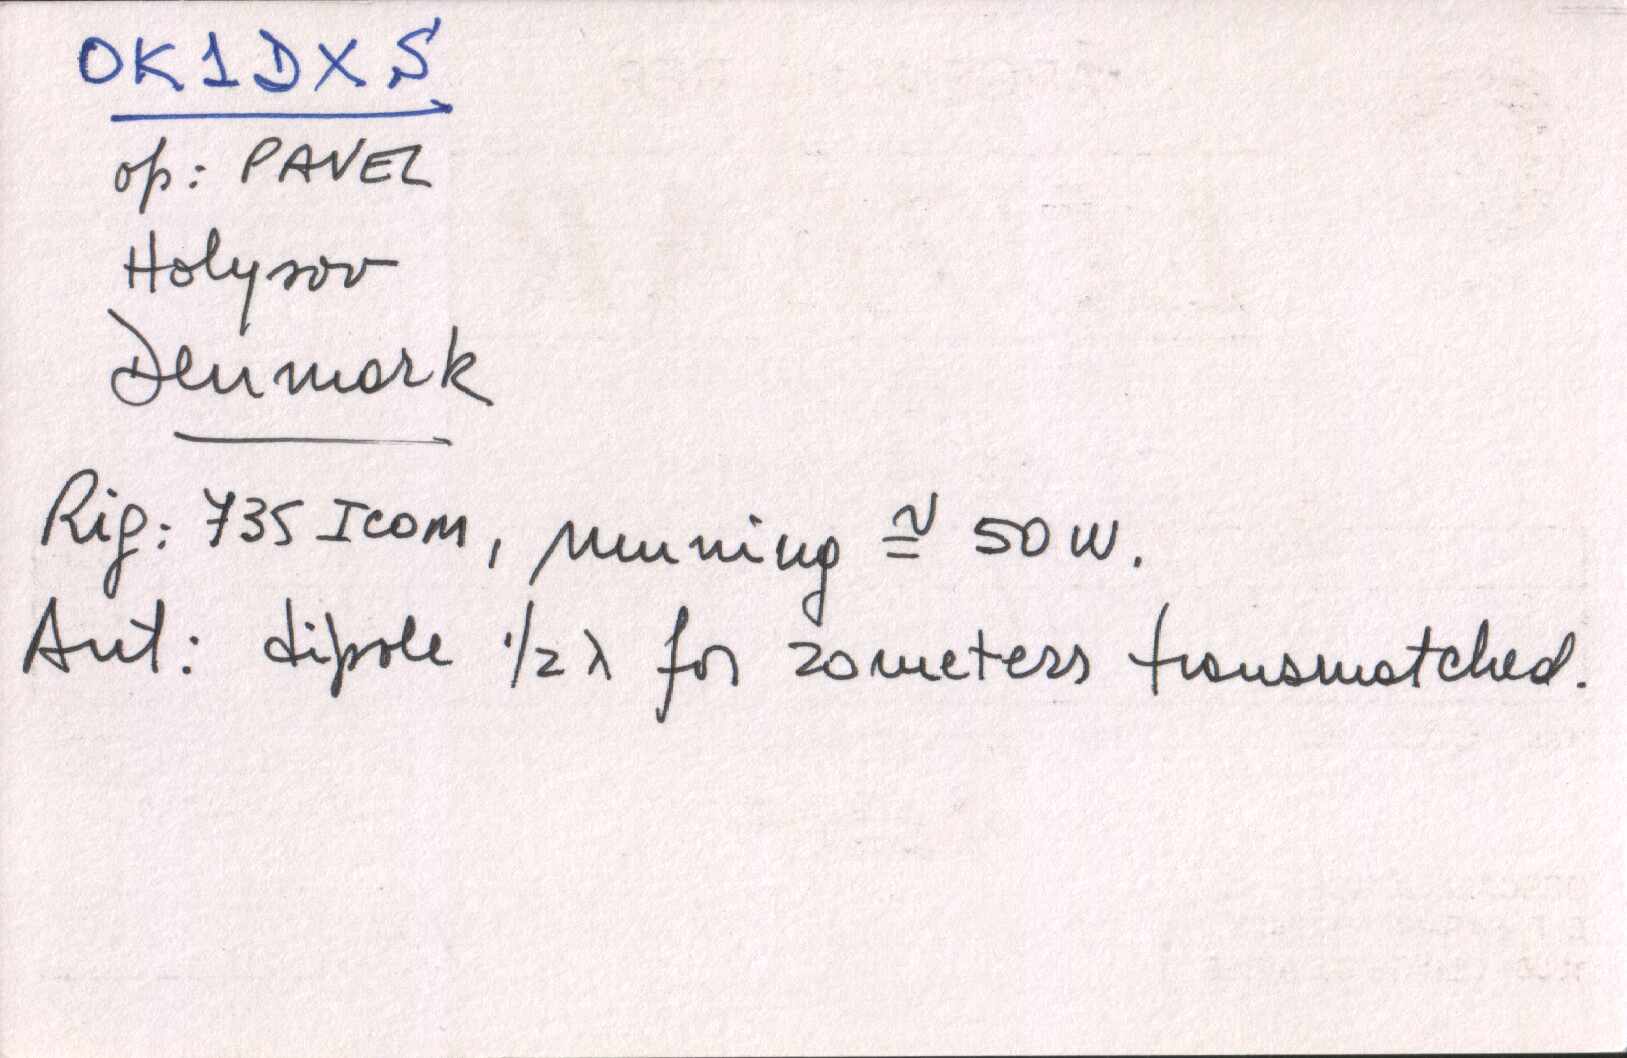 OK1DXS
op: PAVEL
Holysov
Denmark
Rig: 735 Icom, running ≅ 50 W.
Ant: dipole 1/2 λ for 20 meters transmatched.